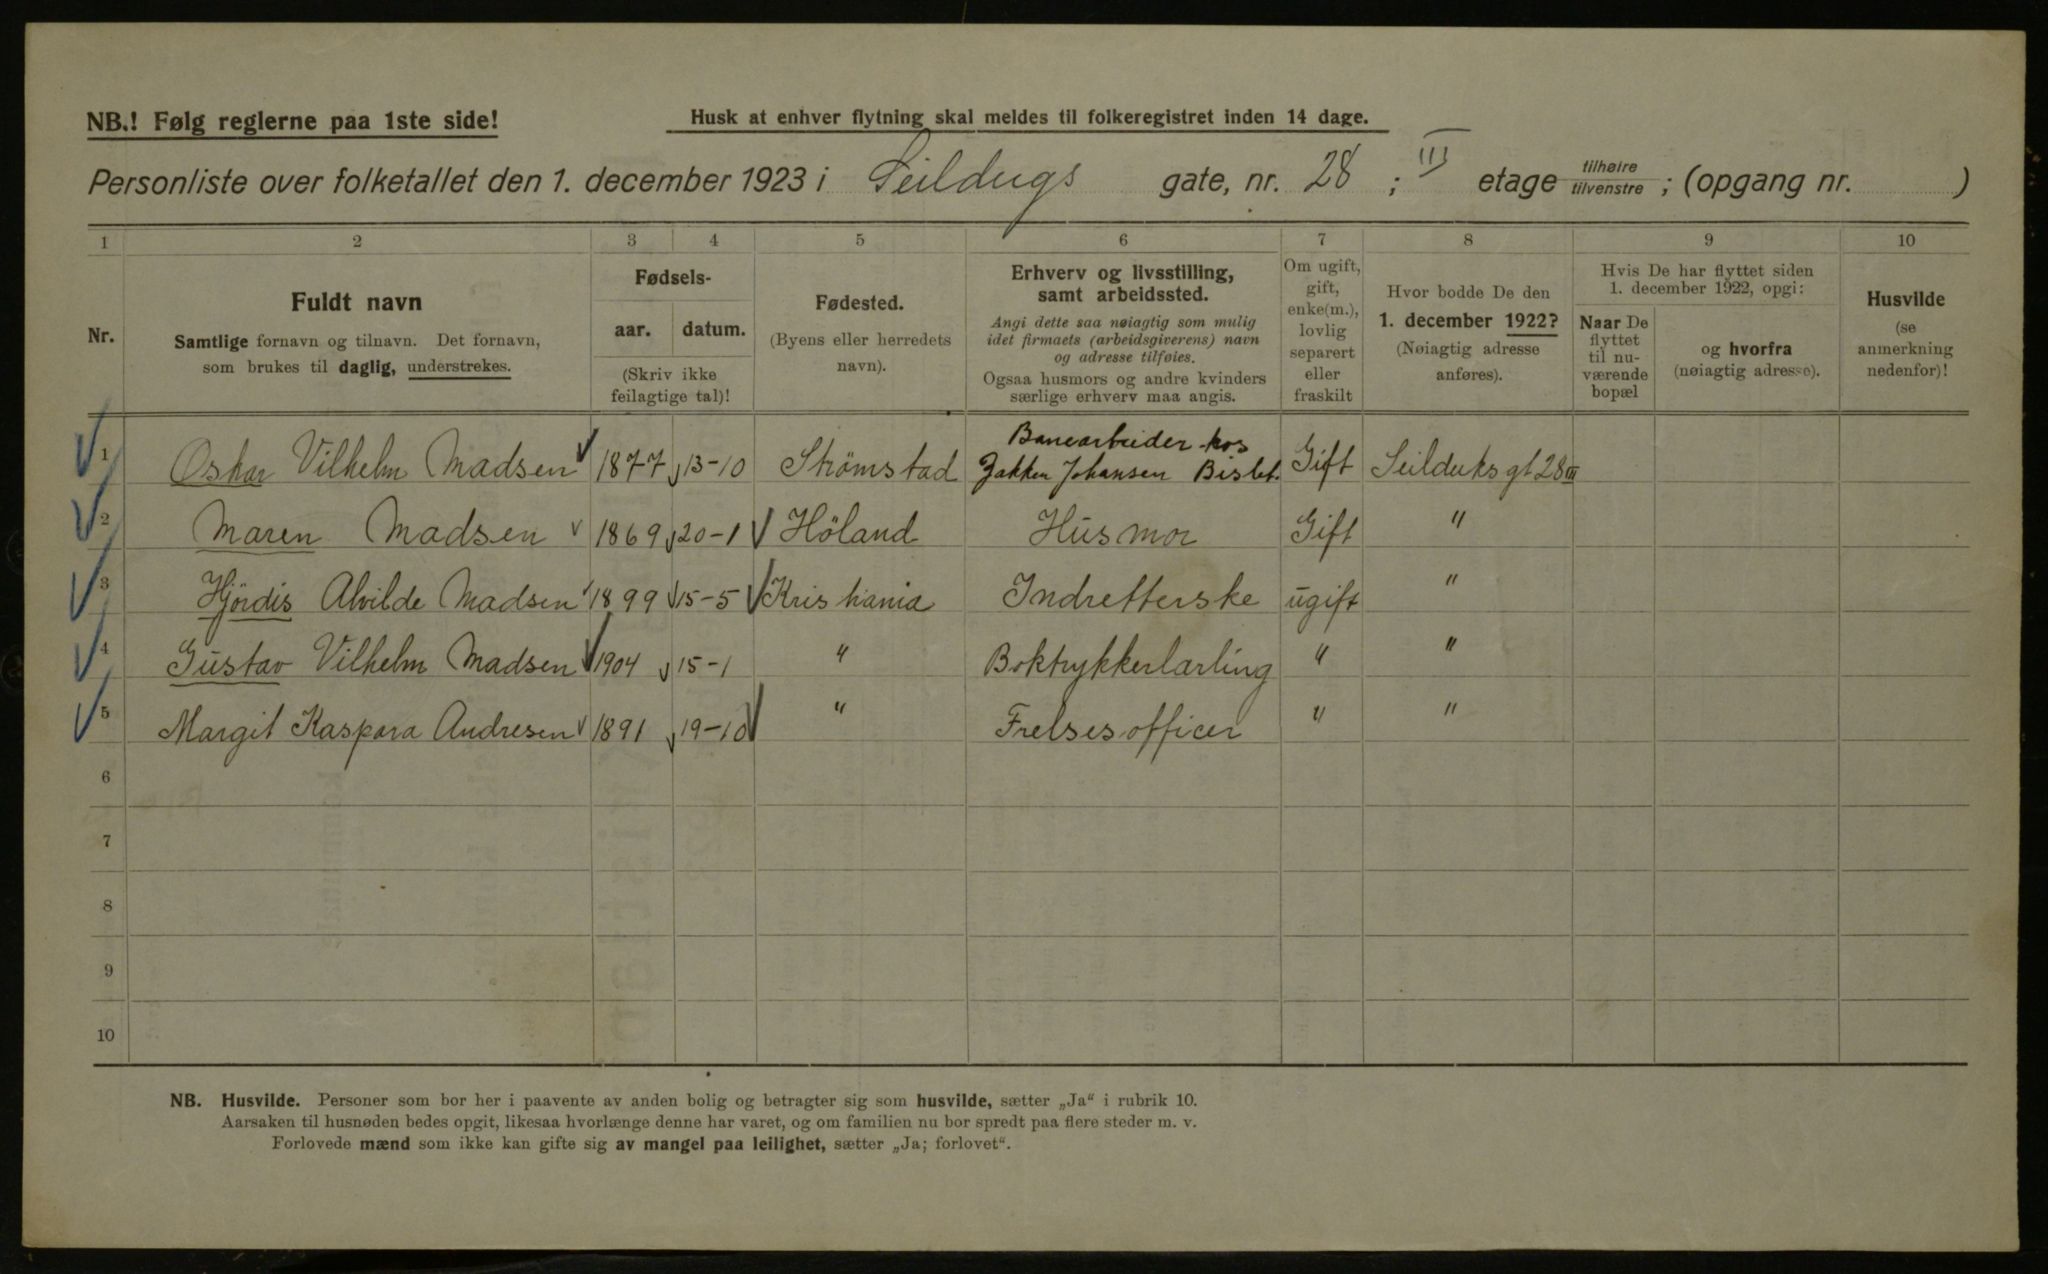 NB.! Følg reglerne paa 1ste side!
Husk at enhver flytning skal meldes til folkeregistret inden 14 dage.
Personliste over folketallet den 1. december 1923 i Seildugs gate, nr. 28 ; III etage tilhøire tilvenstre ; (opgang nr. )
1 2 3 4 5 6 7 8 9 10
Nr.
Fuldt navn
Samtlige fornavn og tilnavn. Det fornavn,
som brukes til daglig, understrekes.
Fødsels-
aar. datum.
(Skriv ikke
feilagtige tal)!
Fødested.
(Byens eller herredets
navn).
Erhverv og livsstilling,
samt arbeidssted.
Angi dette saa nøiagtig som mulig
idet firmaets (arbeidsgiverens) navn
og adresse tilføies.
Ogsaa husmors og andre kvinders
særlige erhverv maa angis.
Om ugift,
gift,
enke(m.),
lovlig
separert
eller
fraskilt
Hvor bodde De den
1. december 1922?
(Nøiagtig adresse
anføres).
Hvis De har flyttet siden
1. december 1922, opgi:
Naar De
flyttet
til nu-
værende
bopæl
og hvorfra
(nøiagtig adresse).
Husvilde
(se
anmerkning
nedenfor)!
1 Oskar Vilhelm Madsen 1877 13-10 Strømstad Banearbeider hos Gift Seilduksgt 28 III
Johansen Bislet.
2 Maren Madsen 1869 20-1 Höland Husmor Gift "
3 Hjördis Alvilde Madsen 1899 15-5 Kristiania Indretterske ugift "
4 Gustav Vilhelm Madsen 1904 15-1 " Boktrykkerlærling " "
5 Margit Kaspara Andresen 1891 19-10 " Frelsesofficer " "
6
7
8
9
10
NB. Husvilde. Personer som bor her i paavente av anden bolig og betragter sig som husvilde, sætter „Ja“ i rubrik 10.
Aarsaken til husnøden bedes opgit, likesaa hvorlænge denne har varet, og om familien nu bor spredt paa flere steder m. v.
Forlovede mænd som ikke kan gifte sig av mangel paa leilighet, sætter „Ja; forlovet“.